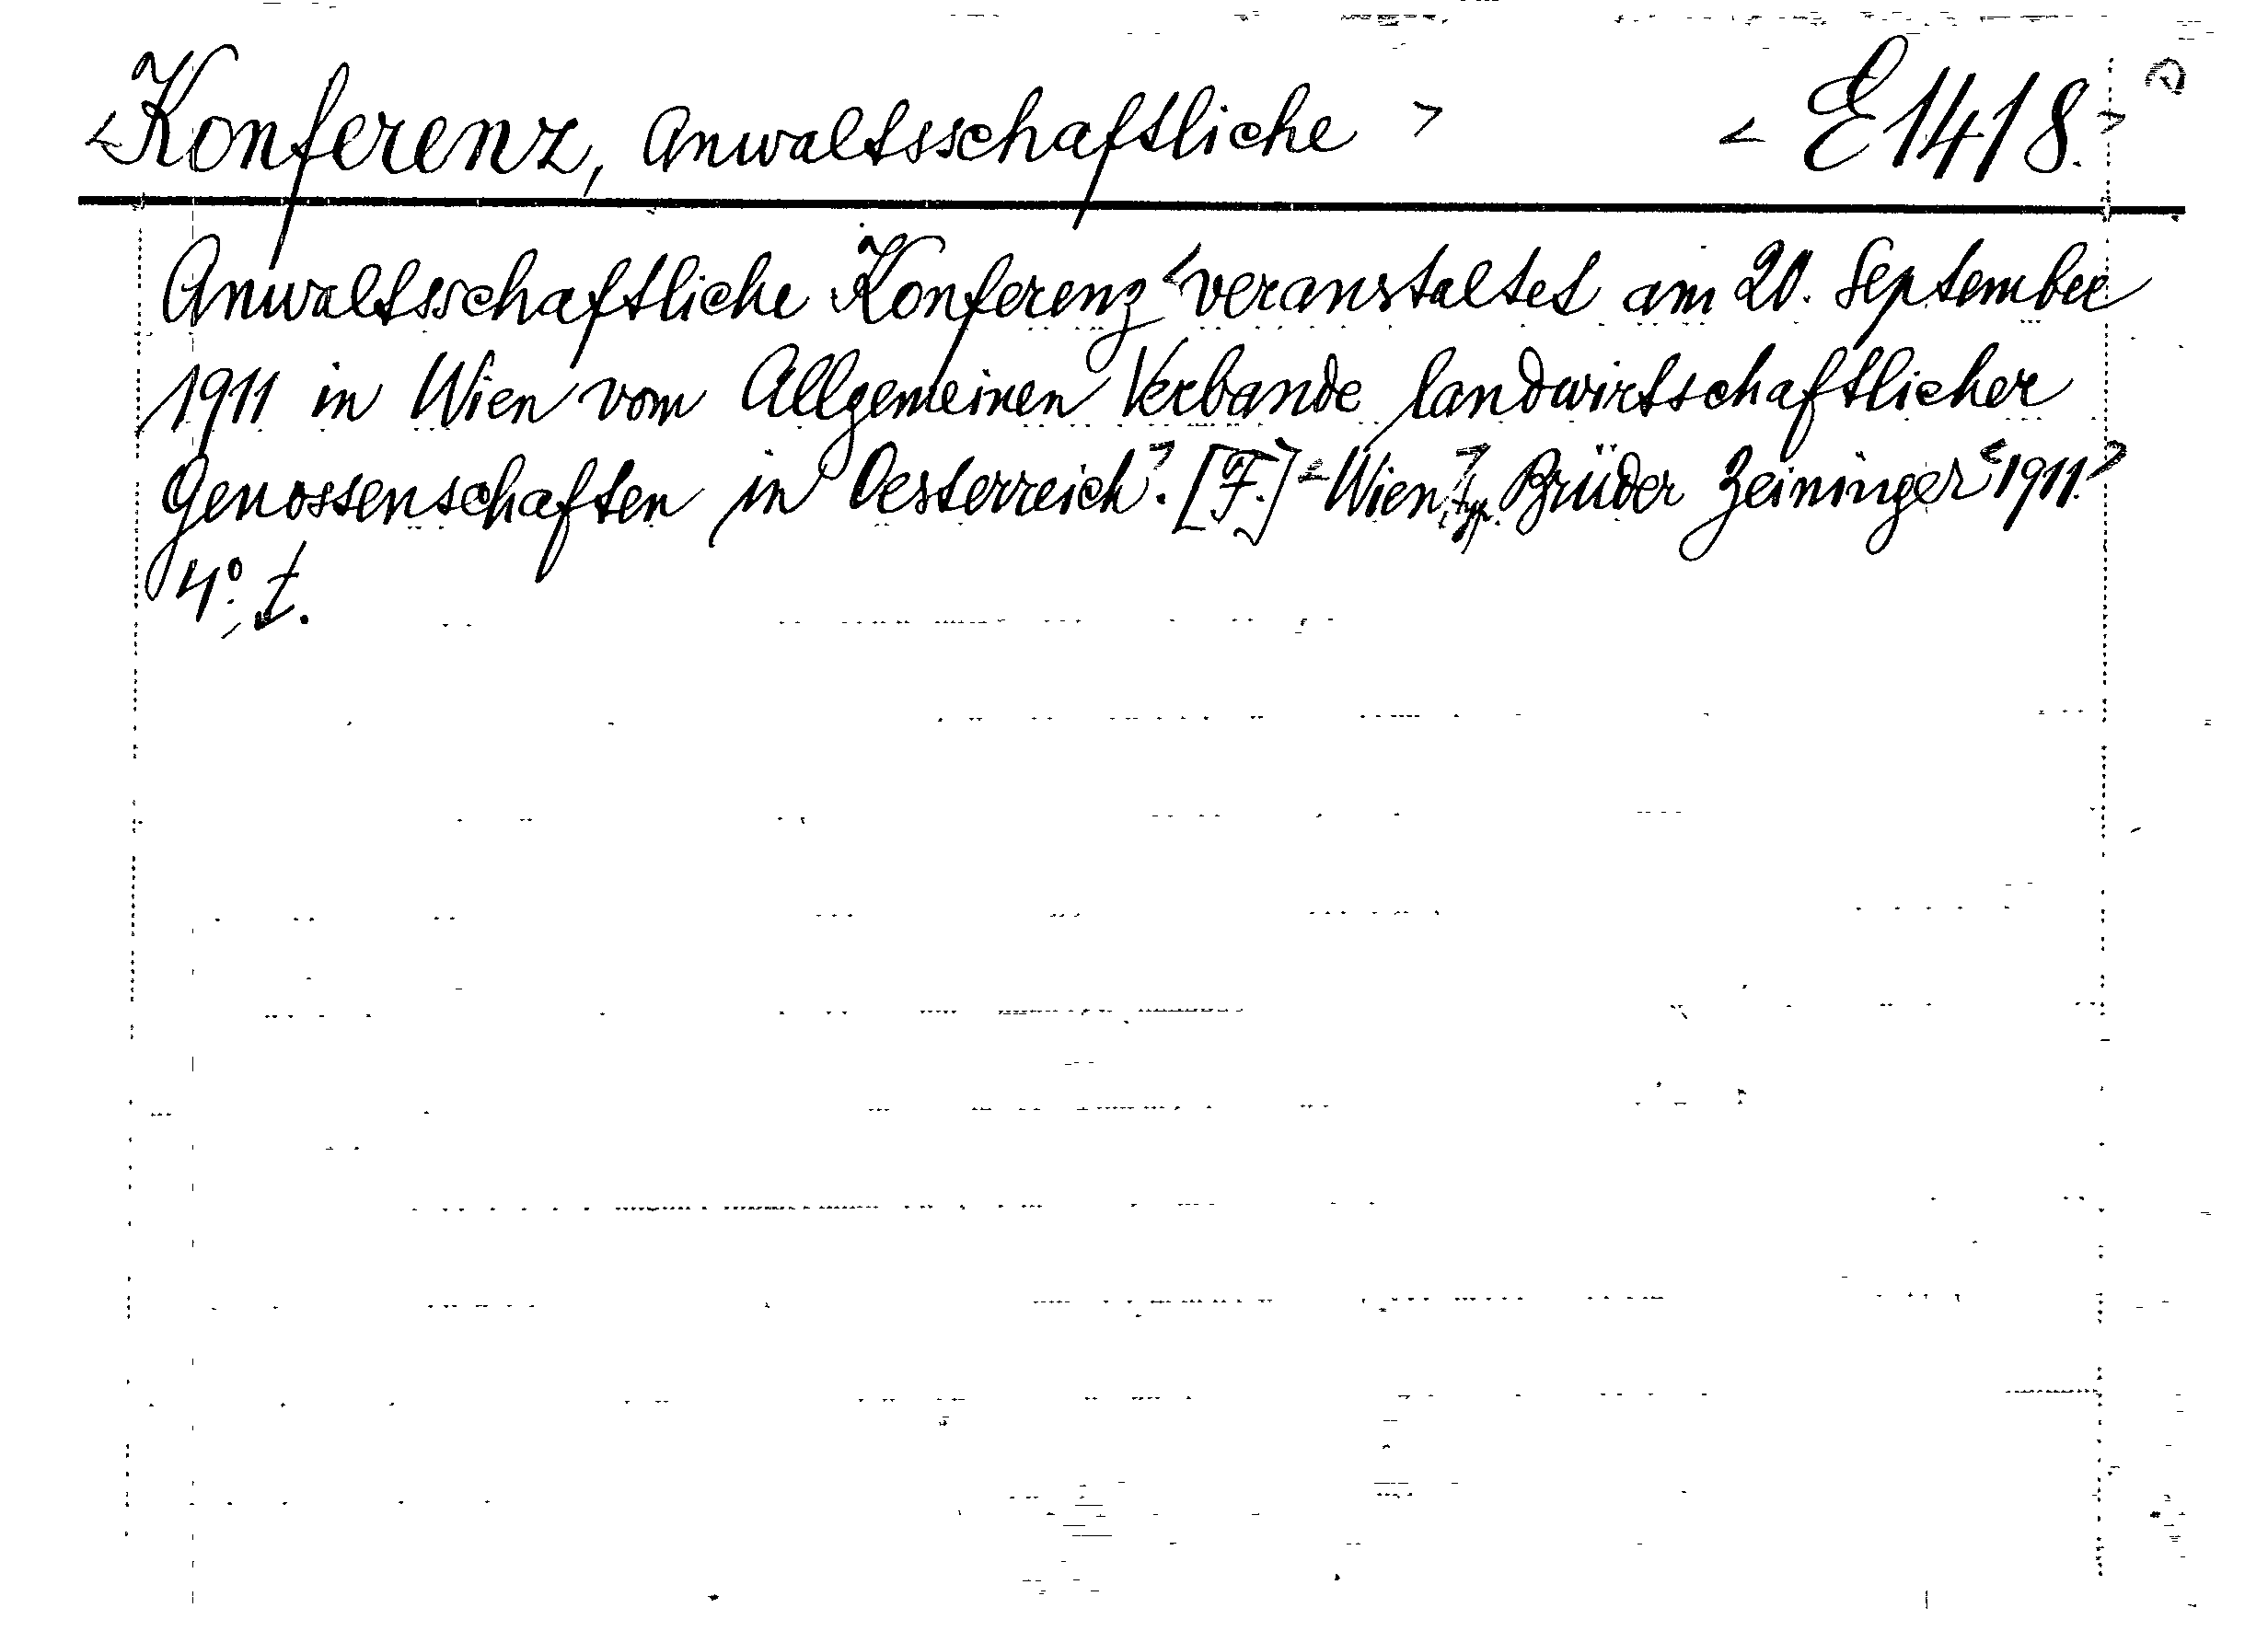 <Konferenz, Anwaltsschaftliche> <E1418.>
Anwaltsschaftliche Konferenz <veranstaltet am 20. September
1911 in Wien vom Allgemeinen Verbande landwirtschaftlicher
Genossenschaften in Oesterreich>. [F.] <Wien,> typ. Brüder Zeininger <1911.>
4º.